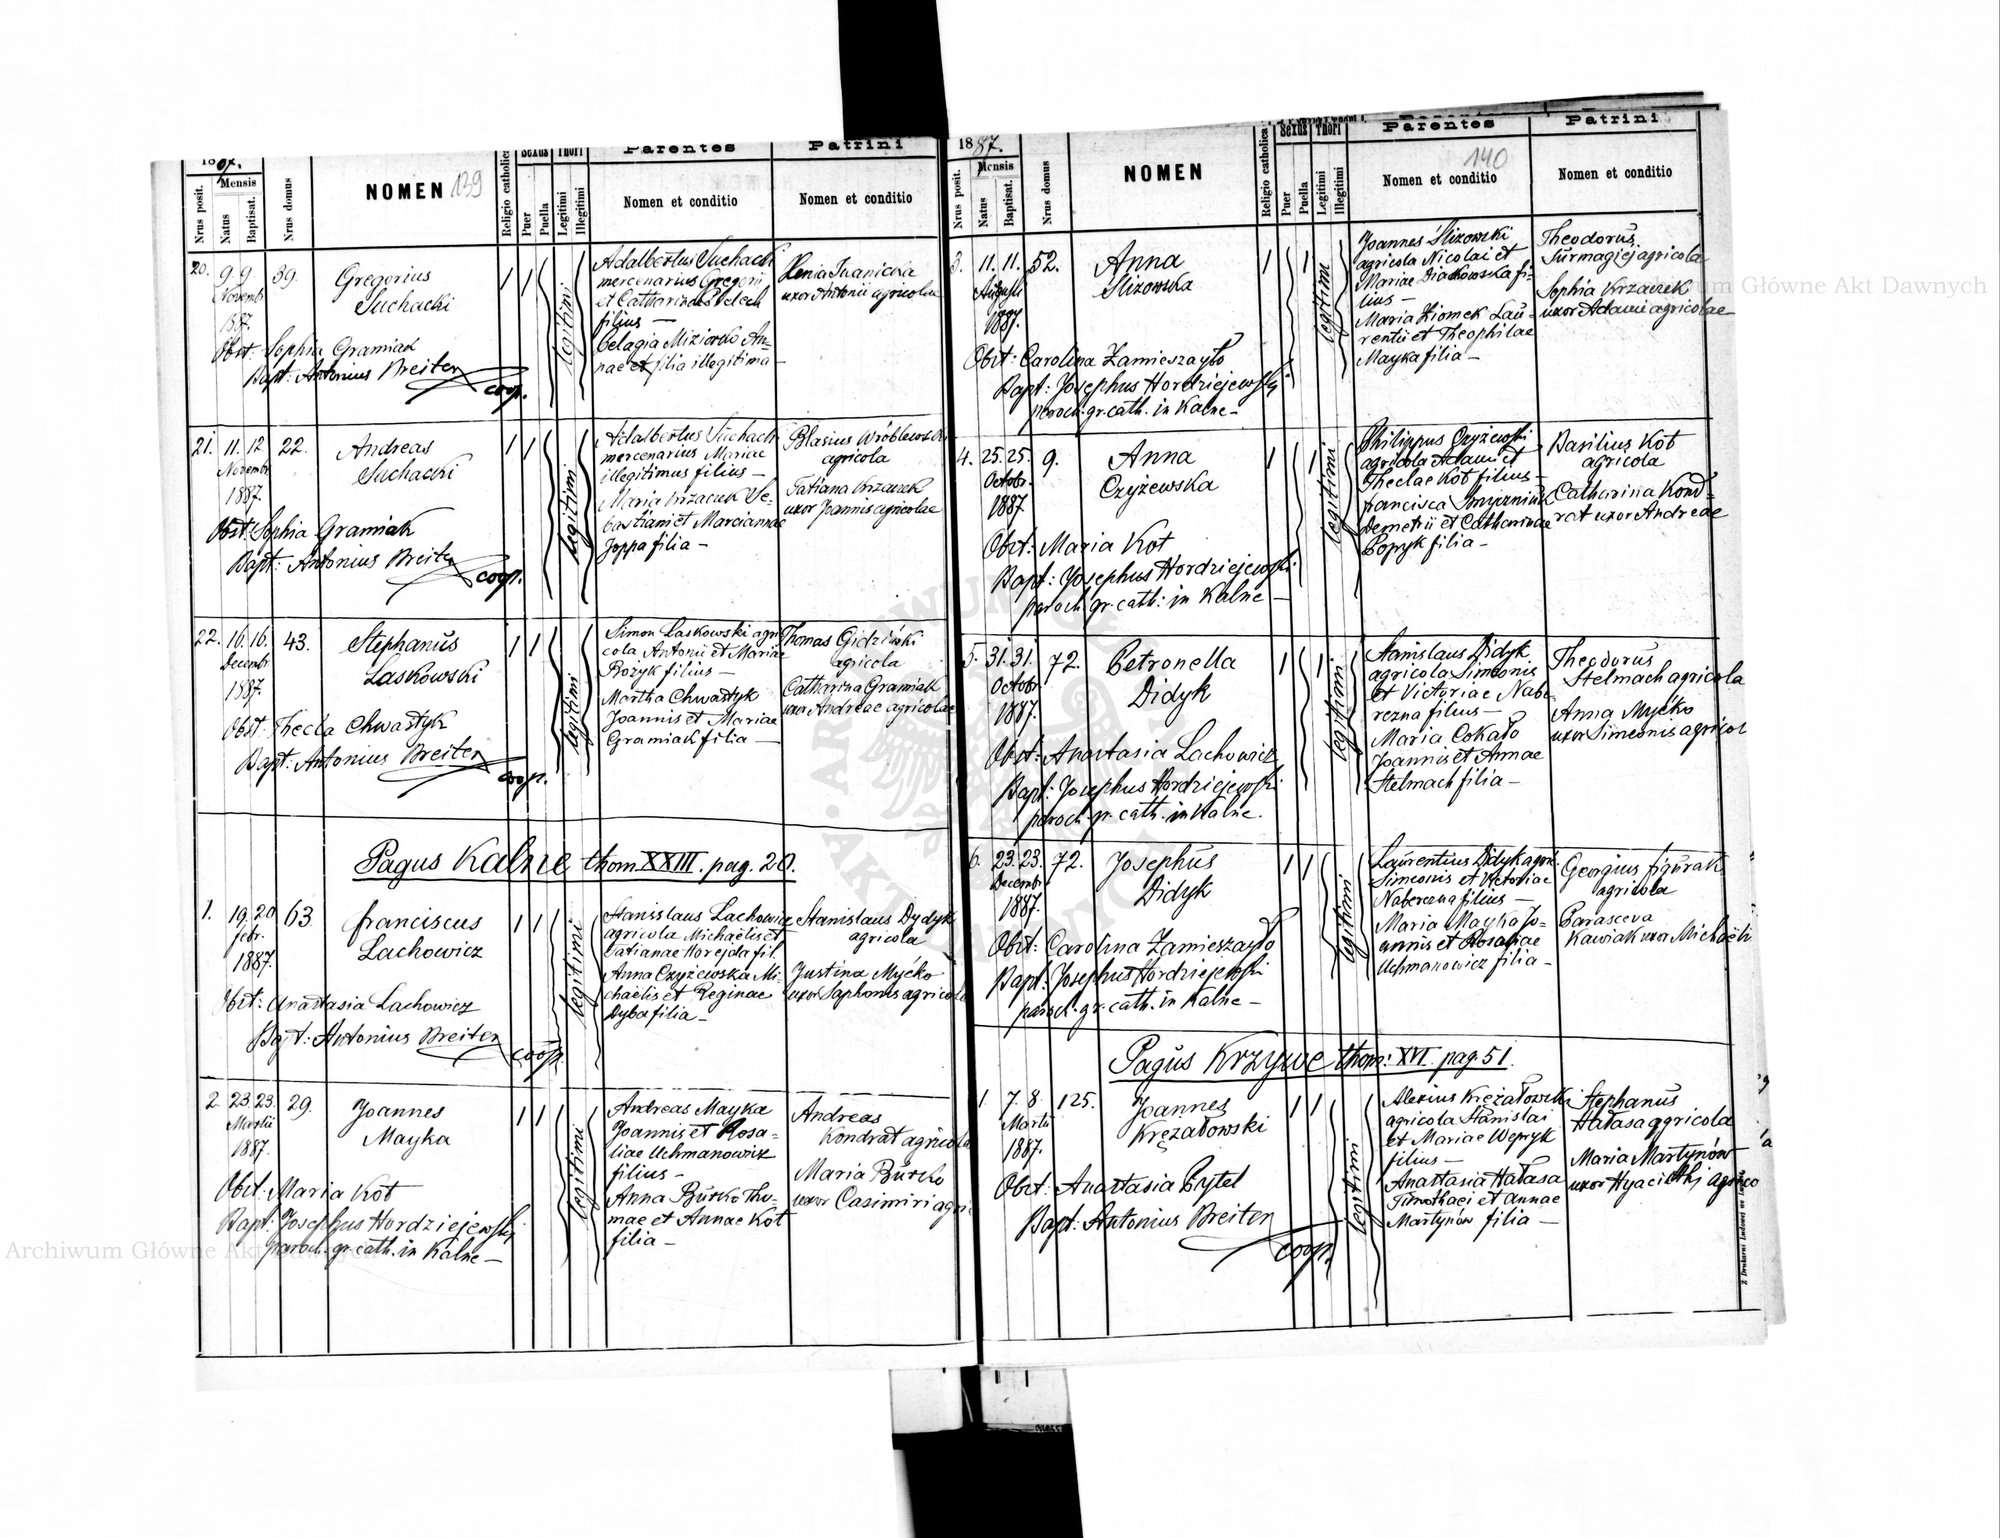 1887.
Nrus posit.
Mensis
Natus
Baptisat.
Nrus domus
NOMEN 139
Religio catholica
Sexus
Puer
Puella
Thori
Legitimi
Illegitimi
Parentes
Nomen et conditio
Patrini
Nomen et conditio
20. 9. 9. 39. Gregorius
Novembr
Suchacki
1887.
Obst: Sophia Gramiak
Bapt: Antonius Breiter
coop.
legitimi
Adalbertus Suchacki
mercenarius Gregorii
et Catharinae
filius —
Pelagia Miziorko An-
nae filia illegitima
Xenia Iwanicka
uxor Antonii agricolae
21. 11. 12 22. Andreas
Novembr
Suchacki
1887.
Obst: Sophia Gramiak
Bapt: Antonius Breiter
coop.
legitimi
Adalbertus Suchacki
mercenarius Mariae
illegitimus filius —
Maria Krzaczek Se-
bastiani et Marciannae
Joppa filia —
Blasius Wróblewski
agricola
Tatiana Krzaczek
uxor Joannis agricolae
22. 16. 16. 43. Stephanus
Decembr
Laskowski
1887.
Obst: Thecla Chwastyk
Bapt: Antonius Breiter
coop.
legitimi
Simon Laskowski agri
cola Antonii et Mariae
Bożyk filius —
Martha Chwastyk
Joannis et Mariae
Gramiak filia —
Thomas Gidziński
agricola
Catharina Gramiak
uxor Andreae agricolae
Pagus Kalne thom XXIII. pag. 20.
1. 19. 20 63. Franciscus
febr.
Lachowicz
1887.
Obst: Anastasia Lachowicz
Bapt: Antonius Breiter
coop.
legitimi
Stanislaus Lachowicz
agricola Michaelis et
Tatianae Horejda fil.
Anna Czyżewska Mi-
chaelis et Reginae
Dyba filia —
Stanislaus Dydyk
agricola
Justina Myćko
uxor Saphonis agricola
2. 23. 23. 29. Joannes
Martii
Mayka
1887.
Obst: Maria Kot
Bapt: Josephus Hordziejewski
paroch. gr. cath. in Kalne —
legitimi
Andreas Mayka
Joannis et Rosa-
liae Uchmanowicz
filius —
Anna Burko Tho-
mae et Annae Kot
filia —
Andreas
Kondrat agricola
Maria Burko
uxor Casimiri agri
1887.
Nrus posit.
Mensis
Natus
Baptisat.
Nrus domus
NOMEN
Religio catholica
Sexus
Puer
Puella
Thori
Legitimi
Illegitimi
Parentes
140
Nomen et conditio
Patrini
Nomen et conditio
3. 11. 11. 52. Anna
Augusti
Slizowska
1887.
Obst: Carolina Zamieszajło
Bapt: Josephus Hordziejewski
paroch. gr. cath. in Kalne —
legitimi
Joannes Slizowski
agricola Nicolai et
Mariae Diakowska fi-
lius —
Maria Ziomek Lau-
rentii et Theophilae
Mayka filia —
Theodorus
Surmagiej agricola
Sophia Krzaczek
uxor Adami agricolae
4. 25. 25. 9. Anna
Octobr.
Czyżewska
1887
Obst: Maria Kot
Bapt: Josephus Hordziejewski
paroch gr. cath: in Kalne —
legitimi
Philippus Czyżewski
agricola Adami et
Theclae Kot filius —
Francisca
Demetrii et Catharinae
Popyk filia —
Basilius Kot
agricola
Catharina Kond-
rat uxor Andreae
5. 31. 31. 72. Petronella
Octobr
Didyk
1887.
Obst: Anastasia Lachowicz
Bapt: Josephus Hordziejewski
paroch. gr. cath. in Kalne.
legitimi
Stanislaus Didyk
agricola Simeonis
et Victoriae Nabe-
rezna filius —
Maria Cokało
Joannis et Annae
Stelmach filia —
Theodorus
Stelmach agricola
Anna Myćko
uxor Simeonis agricol
6. 23. 23. 72. Josephus
Decembr
Didyk
1887.
Obst: Carolina Zamieszajło
Bapt: Josephus Hordziejewski
paroch. gr. cath. in Kalne —
legitimi
Laurentius Didyk agri.
Simeonis et Victoriae
Naberezna filius —
Maria Mayka Jo-
annis et Rosaliae
Uchmanowicz filia —
Georgius Figurak
agricola
Parasceva
Kawiak uxor Michaeli
Pagus Krzywe thom: XVI. pag. 51.
1. 7. 8. 125. Joannes
Martii
Krężałowski
1887.
Obst: Anastasia Pytel
Bapt: Antonius Breiter
coop.
legitimi
Alexius Krężałowski
agricola Stanislai
et Mariae Wepryk
filius —
Anastasia Hałasa
Timothaei et Annae
Martynów filia —
Stephanus
Hałasa agricola
Maria Martynów
uxor Hyacinthi agrico
Z Drukarni Ludowej we Lwowie
Archiwum Główne Akt Dawnych
Archiwum Główne Akt Dawnych